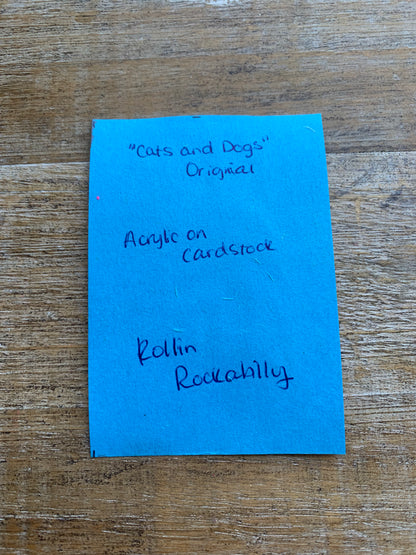 "Cats and Dogs"
Original
Acrylic on
Cardstock
Rollin
Rockabilly